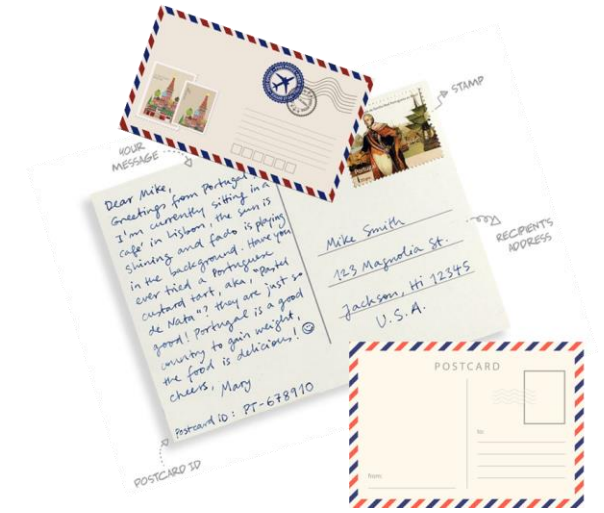 STAMP
YOUR
MESSAGE
Dear Mike,
Greetings from Portugal
I'm currently sitting in a
cafe in Lisbon, the sun is
shining and fado is playing
in the background. Have you
ever tried a Portuguese
custard tart, aka, "pastel
de Nata"? they are just so
good! Portugal is a good
country to gain weight,
the food is delicious! ☺
cheers, Mary
Postcard iD: PT-678910
Mike Smith
123 Magnolia St.
Jackson, Hi 12345
U.S.A.
RECIPIENT'S
ADDRESS
POSTCARD ID
POSTCARD